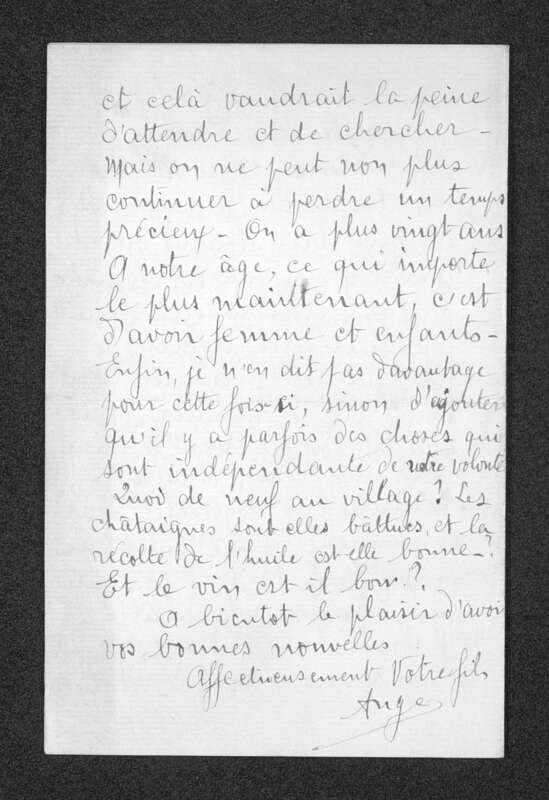 et celà vaudrait la peine
d'attendre et de chercher -
Mais on ne peut non plus
continuer à perdre un temps
précieux - On a plus vingt ans
A notre âge, ce qui importe
le plus maintenant, c'est
d'avoir femme et enfants -
Enfin, je n'en dit pas davantage
pour cette fois-ci, sinon d'ajouter
qu'il y a parfois des choses qui
sont indépendante de notre volonté
Quoi de neuf au village ? Les
châtaignes sont elles bâttues, et la
récolte de l'huile est elle bonne - ?
Et le vin est il bon ?
A bientot le plaisir d'avoir
vos bonnes nouvelles
Affectueusement Votre fils
Ange